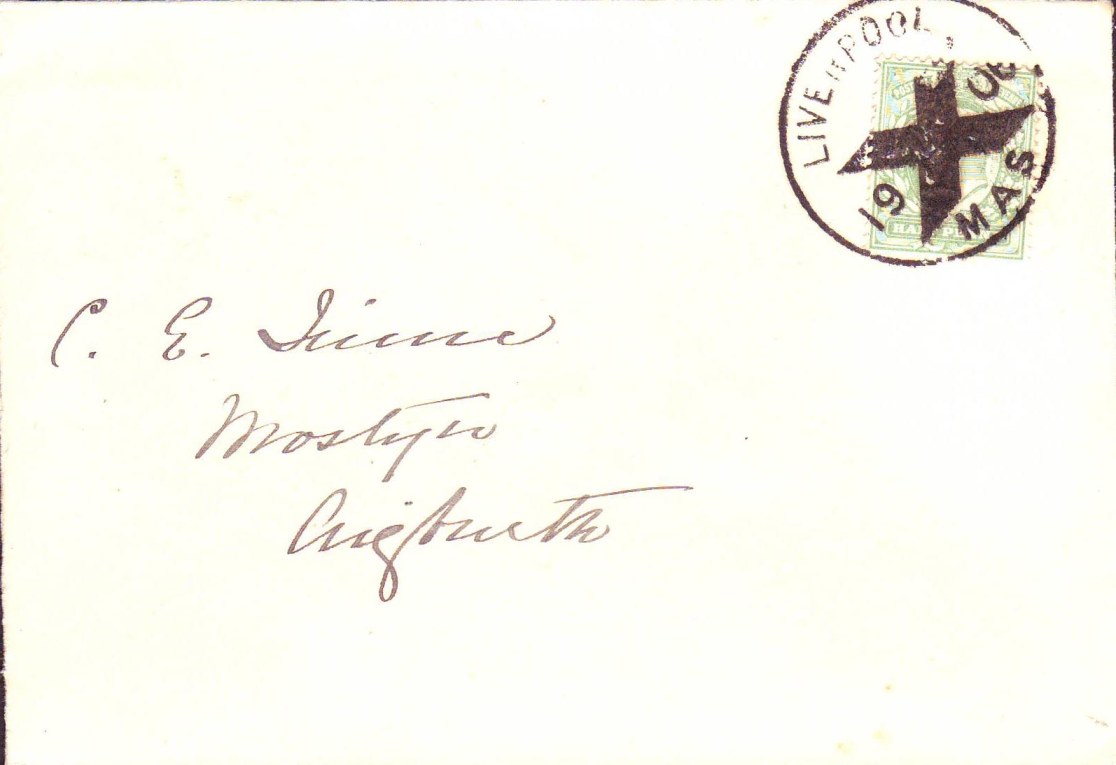 LIVERPOOL
19 06
MAS
HALFPENNY
C. E.
Mostyn
Aigburth